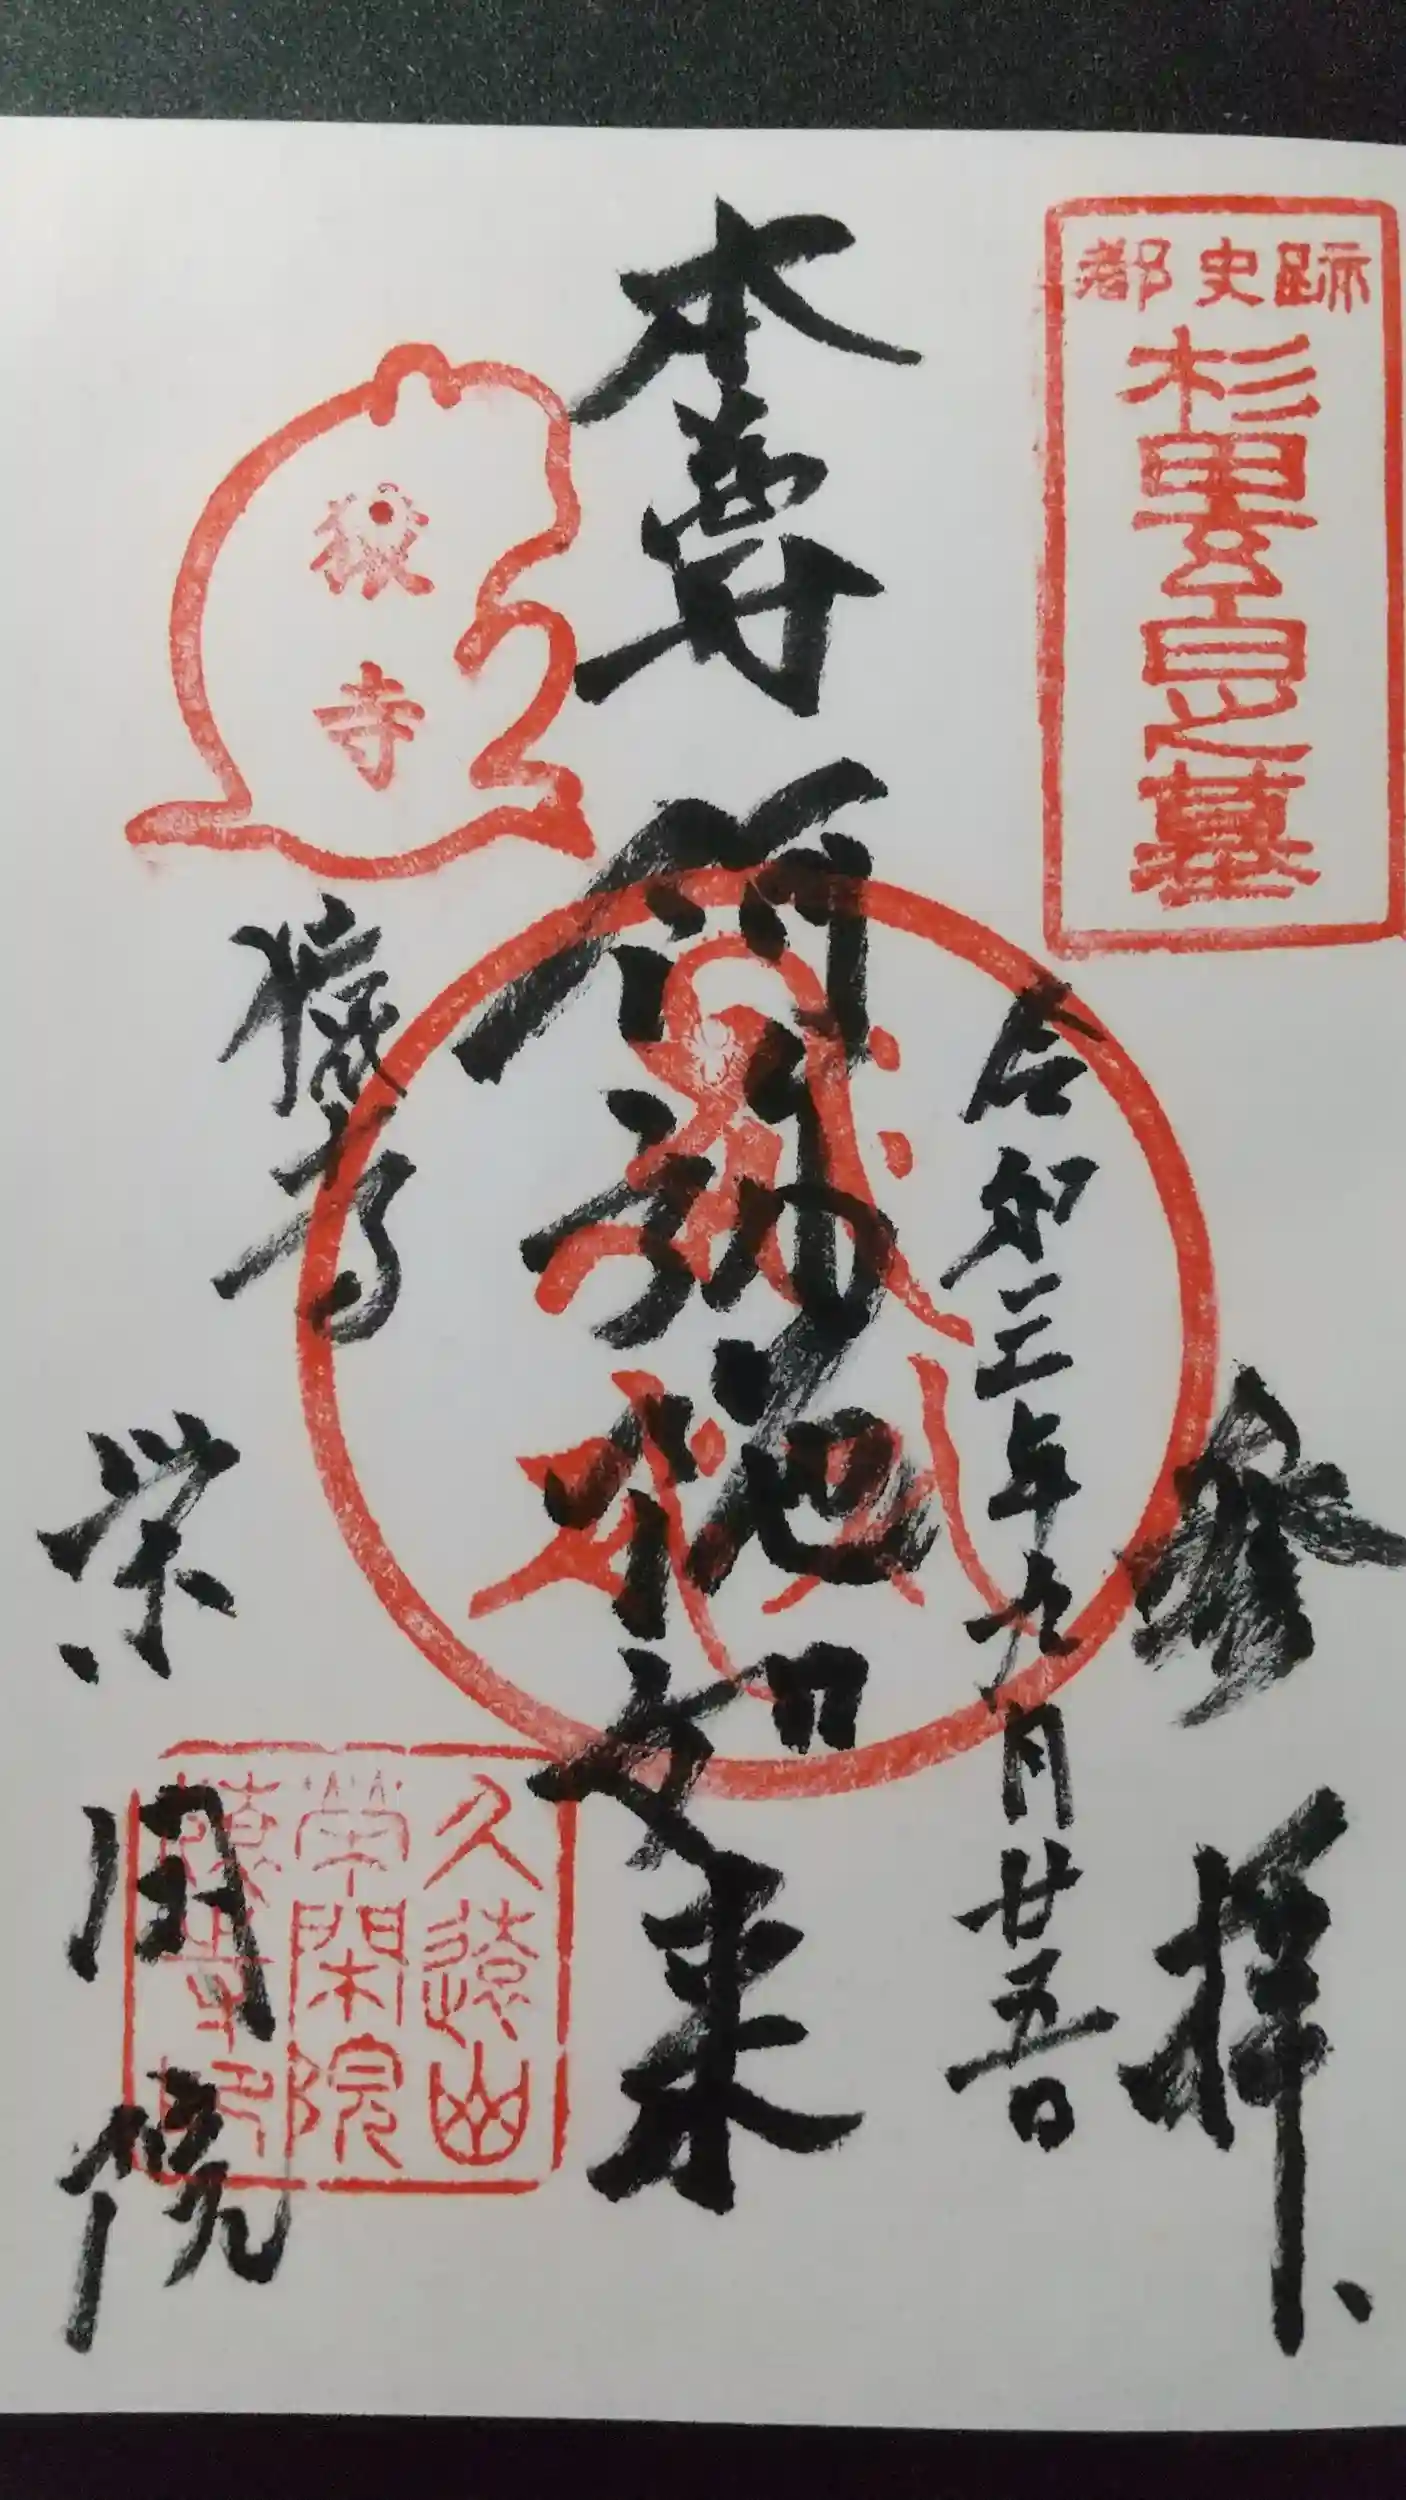 都史跡
杉田玄白之墓
参拝
令和三年九月廿五日
本尊 阿弥陀如来
猿寺
猿寺
栄閑院
久遠山
栄閑院
猿寺印